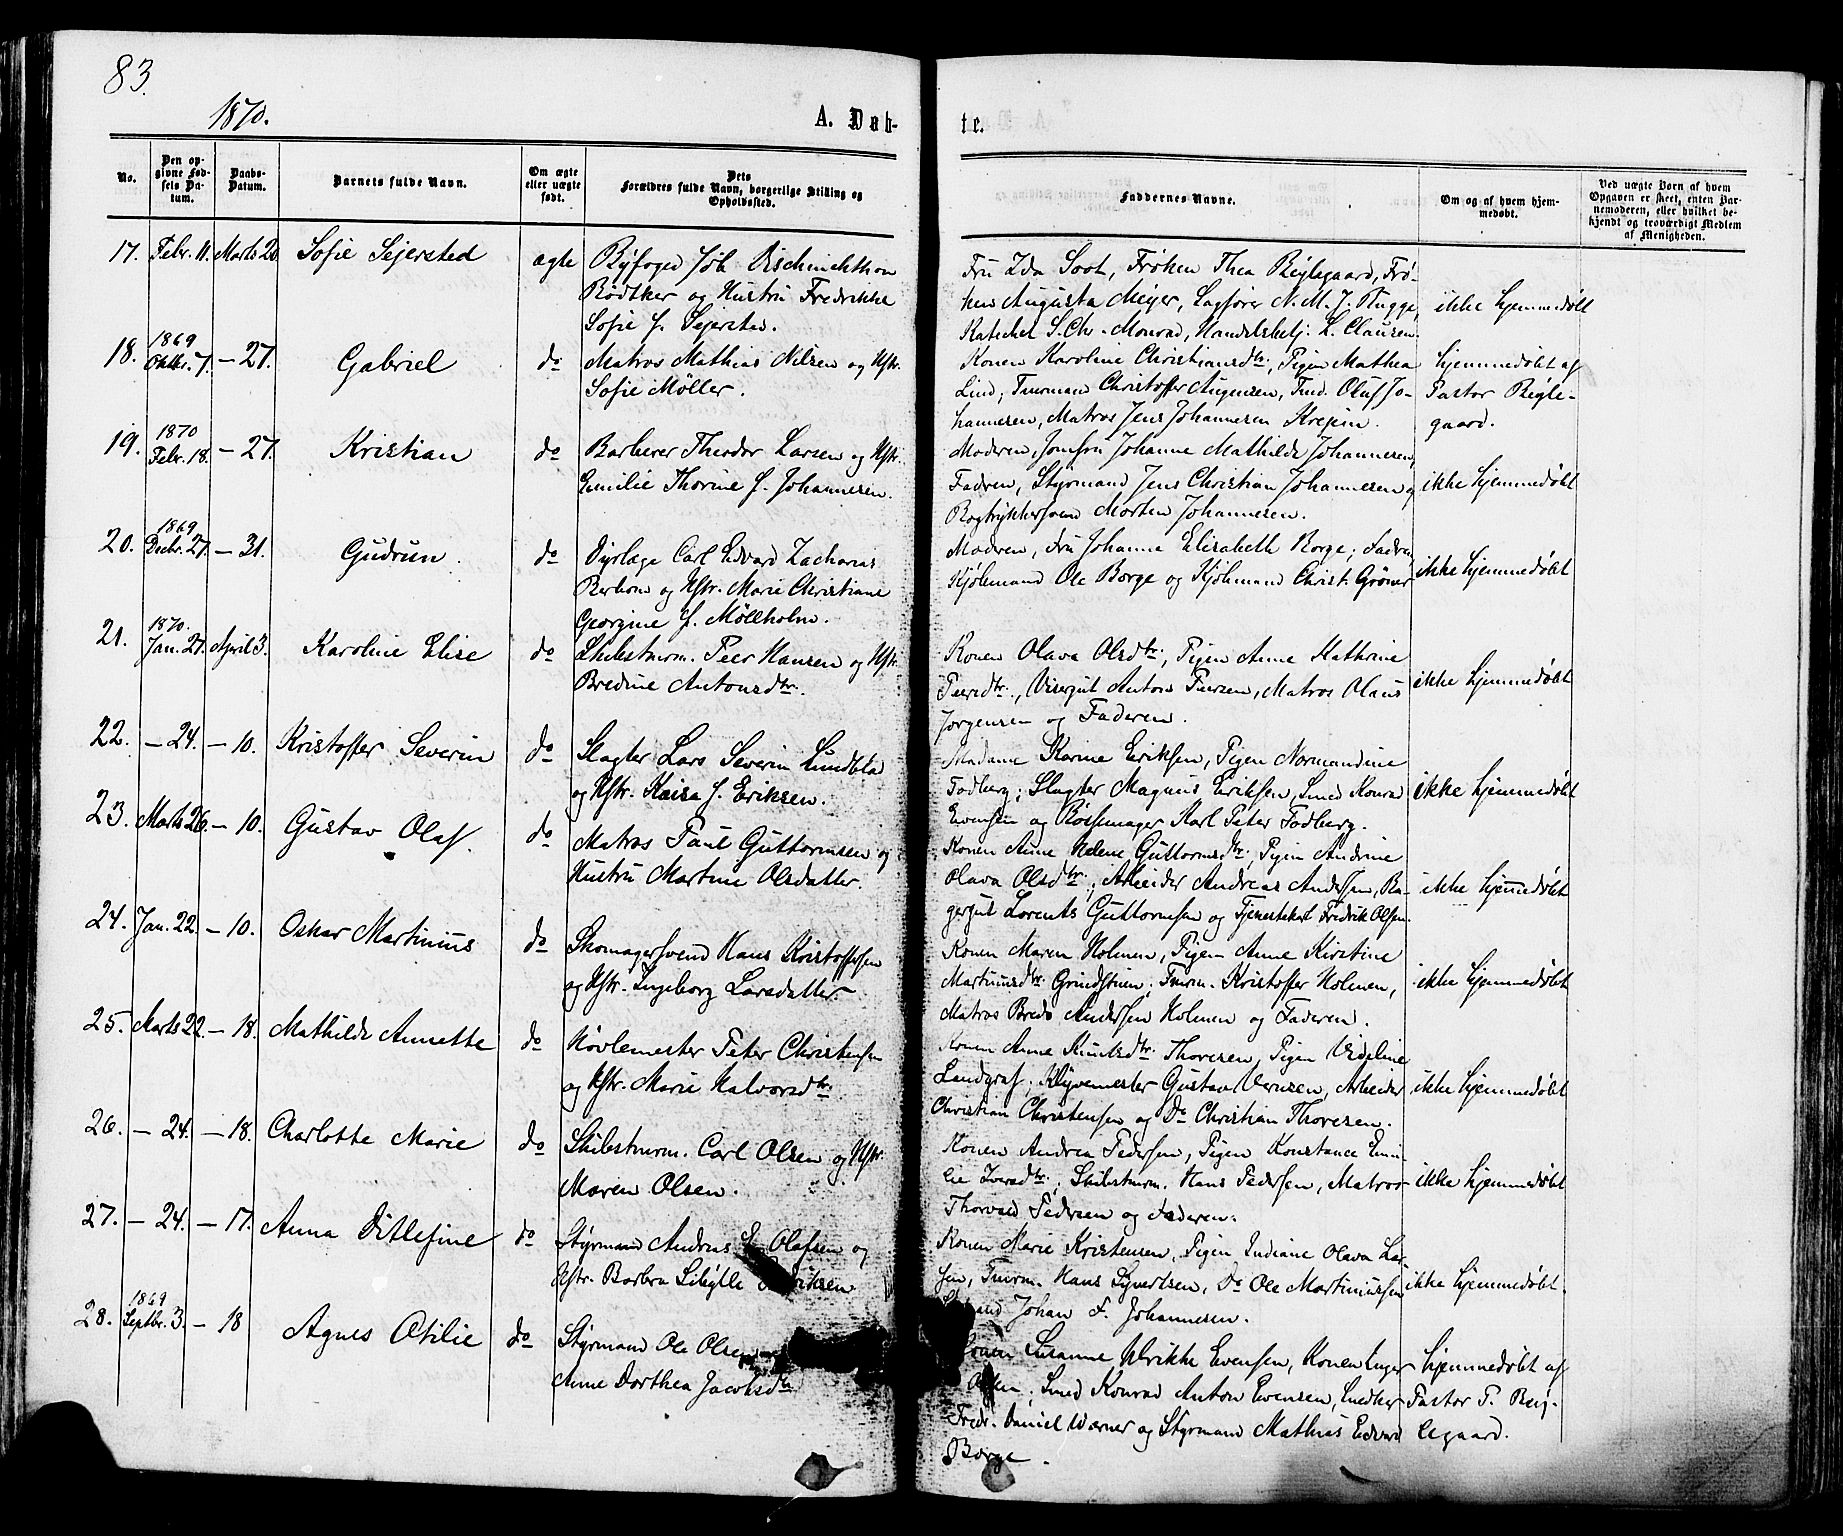 83.
1870.
A. Daab- te.
No.
Den opgivne Fødsels Datum.
Daabs-Datum.
Barnets fulde Navn.
Om ægte eller uægte født.
Dets Forældres fulde Navn, borgerlige Stilling og Opholdssted.
Faddernes Navne.
Om og af hvem hjemmedøbt.
Ved uægte Børn af hvem Opgaven er skeet, enten Barnemoderen, eller hvilket bekjendt og troværdigt Medlem af Menigheden.
17. Febr. 11. Marts 20. Sofie Sejersted ægte Byfoged Job Dischinchthon
Bødtker og Hustru Fredrikke
Sofie f. Sejersted.
Fru Ida Soot, Frøken Thea Bejlegaard, Frø-
ken Augusta Meyer, Sagfører N. M. J. Flugge,
Katechet S. Chr. Monrad, Handelsbetj. L. Clausen.
ikke hjemmedøbt
18. 1869 Oktbr. 7. — 27. Gabriel do Matros Mathias Nilsen og Hstr.
Sofie Møller.
Konen Karoline Christiansdtr., Pigen Mathea
Lind; Tmrmand Christoffer Augensen, Tmd. Oluf Jo-
hannesen, Matros Jens Johannesen Krejin.
hjemmedøbt af
Pastor Bejle-
gaard.
19. 1870 Febr. 18. — 27. Kristian do Barberer Theodor Larsen og Hstr.
Emilie Thorine f. Johannesen.
Moderen, Jomfru Johanne Mathilde Johannesen,
Fadren, Styrmand Jens Christian Johannesen og
Bogtrykkersvend Morten Johannesen.
ikke hjemmedøbt
20. 1869 Decbr. 27. — 31. Gudrun. do Dyrlæge Carl Edvard Zacharias
Berbom og Hstr. Marie Christiane
Georgine f. Møllholm.
Modren, Fru Johanne Elisabeth Borge; Fadren,
Kjøbmand Ole Borge og Kjøbmand Christ. Grøner
ikke hjemmedøbt
21. 1870. Jan. 27. April 3. Karoline Elise do Skibstmrm. Peer Hansen og Hstr.
Bredine Antonsdtr.
Konen Olava Olsdtr., Pigen Anne Kathrine
Peersdtr., Visergut Anton Peersen, Matros Olaus
Jørgensen og Faderen.
ikke hjemmedøbt
22. — 24. — 10. Kristoffer Severin do Slagter Lars Severin Lundblad
og Hstr. Kaisa f. Eriksen.
Madame Karine Eriksen, Pigen Normandine
Fodberg; Slagter Magnus Eriksen, Smed Konrad
Evensen og Børsemager Karl Peter Fodberg.
ikke hjemmedøbt
23. Marts 26. — 10. Gustav Olaf. do Matros Paul Guttormsen og
Hustru Martine Olsdatter.
Konen Anne Helene Guttormsdtr., Pigen Andrine
Olava Olsdtr.; Arbeider Andreas Andersen, Ba-
gergut Lorents Guttormsen og Tjenestekarl Fredrik Olsen.
ikke hjemmedøbt
24. Jan. 22. — 10. Oskar Martinius do Skomagersvend Hans Kristoffersen
og Hstr. Ingeborg Larsdatter.
Konen Maren Holmen, Pigen Anne Kirstine
Martinusdtr. Grindstuen; Tmrm. Kristoffer Holmen,
Matros Brede Andersen Holmen og Faderen.
ikke hjemmedøbt
25. Marts 22. — 18. Mathilde Annette do Høvlemester Peter Christensen
og Hstr. Marie Halvorsdtr.
Konen Anne Knutsdtr. Thoresen, Pigen Videline
Landgraf; Klyvemester Gustav Vernsen, Arbeider
Christian Christensen og Do Christian Thoresen.
ikke hjemmedøbt
26. — 24. — 18. Charlotte Marie do Skibstmrm. Carl Olsen og Hstr.
Maren Olsen.
Konen Andrea Pedersen, Pigen Konstance Emi-
lie Iversdtr.; Skibstmrm. Hans Pedersen, Matros
Thorvald Pedersen og Faderen.
ikke hjemmedøbt
27. — 24. — 17. Anna Ditlefine do Styrmand Andreas Olafsen og
Hstr. Barbra Sibylle
Konen Marie Kristensen, Pigen Indiane Olava Lar-
sen, Tmrm. Hans Syvertsen, Do Ole Martiniussen
Johan F. Johannesen.
ikke hjemmedøbt.
28. 1869 Septbr. 3. — 18 Agnes Otilie do Styrmand Ole Olsen
Anne Dorthea Jacobsdtr
Konen Susanne Ulrikke Evensen, Konen Inger
Olsen; Smed Konrad Anton Evensen, Snedker
Fredr. Daniel Werner og Styrmand Mathias Edvard
Borge.
hjemmedøbt af
Pastor P. Bej-
legaard.